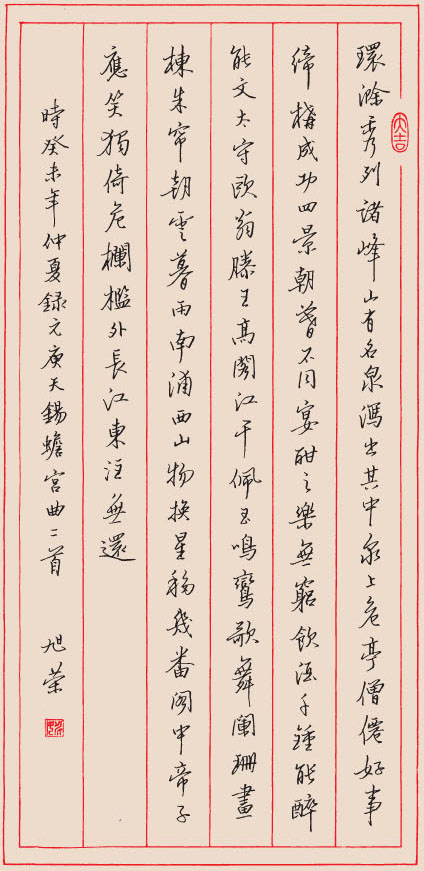 大吉
環滁秀列諸峰山有名泉瀉出其中泉上危亭僧僊好事
締構成功四景朝暮不同宴酣之樂無窮飲酒千鍾能醉
能文太守歐翁滕王高閣江干佩玉鳴鸞歌舞闌珊畫
棟朱帘朝雲暮雨南浦西山物換星移幾番閣中帝子
應笑獨倚危欄檻外長江東注無還
時癸未年仲夏録元庾天錫蟾宮曲二首 旭榮